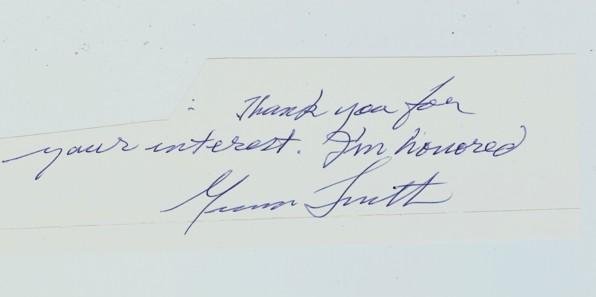 : Thank you for
your interest. I'm honored
Smith